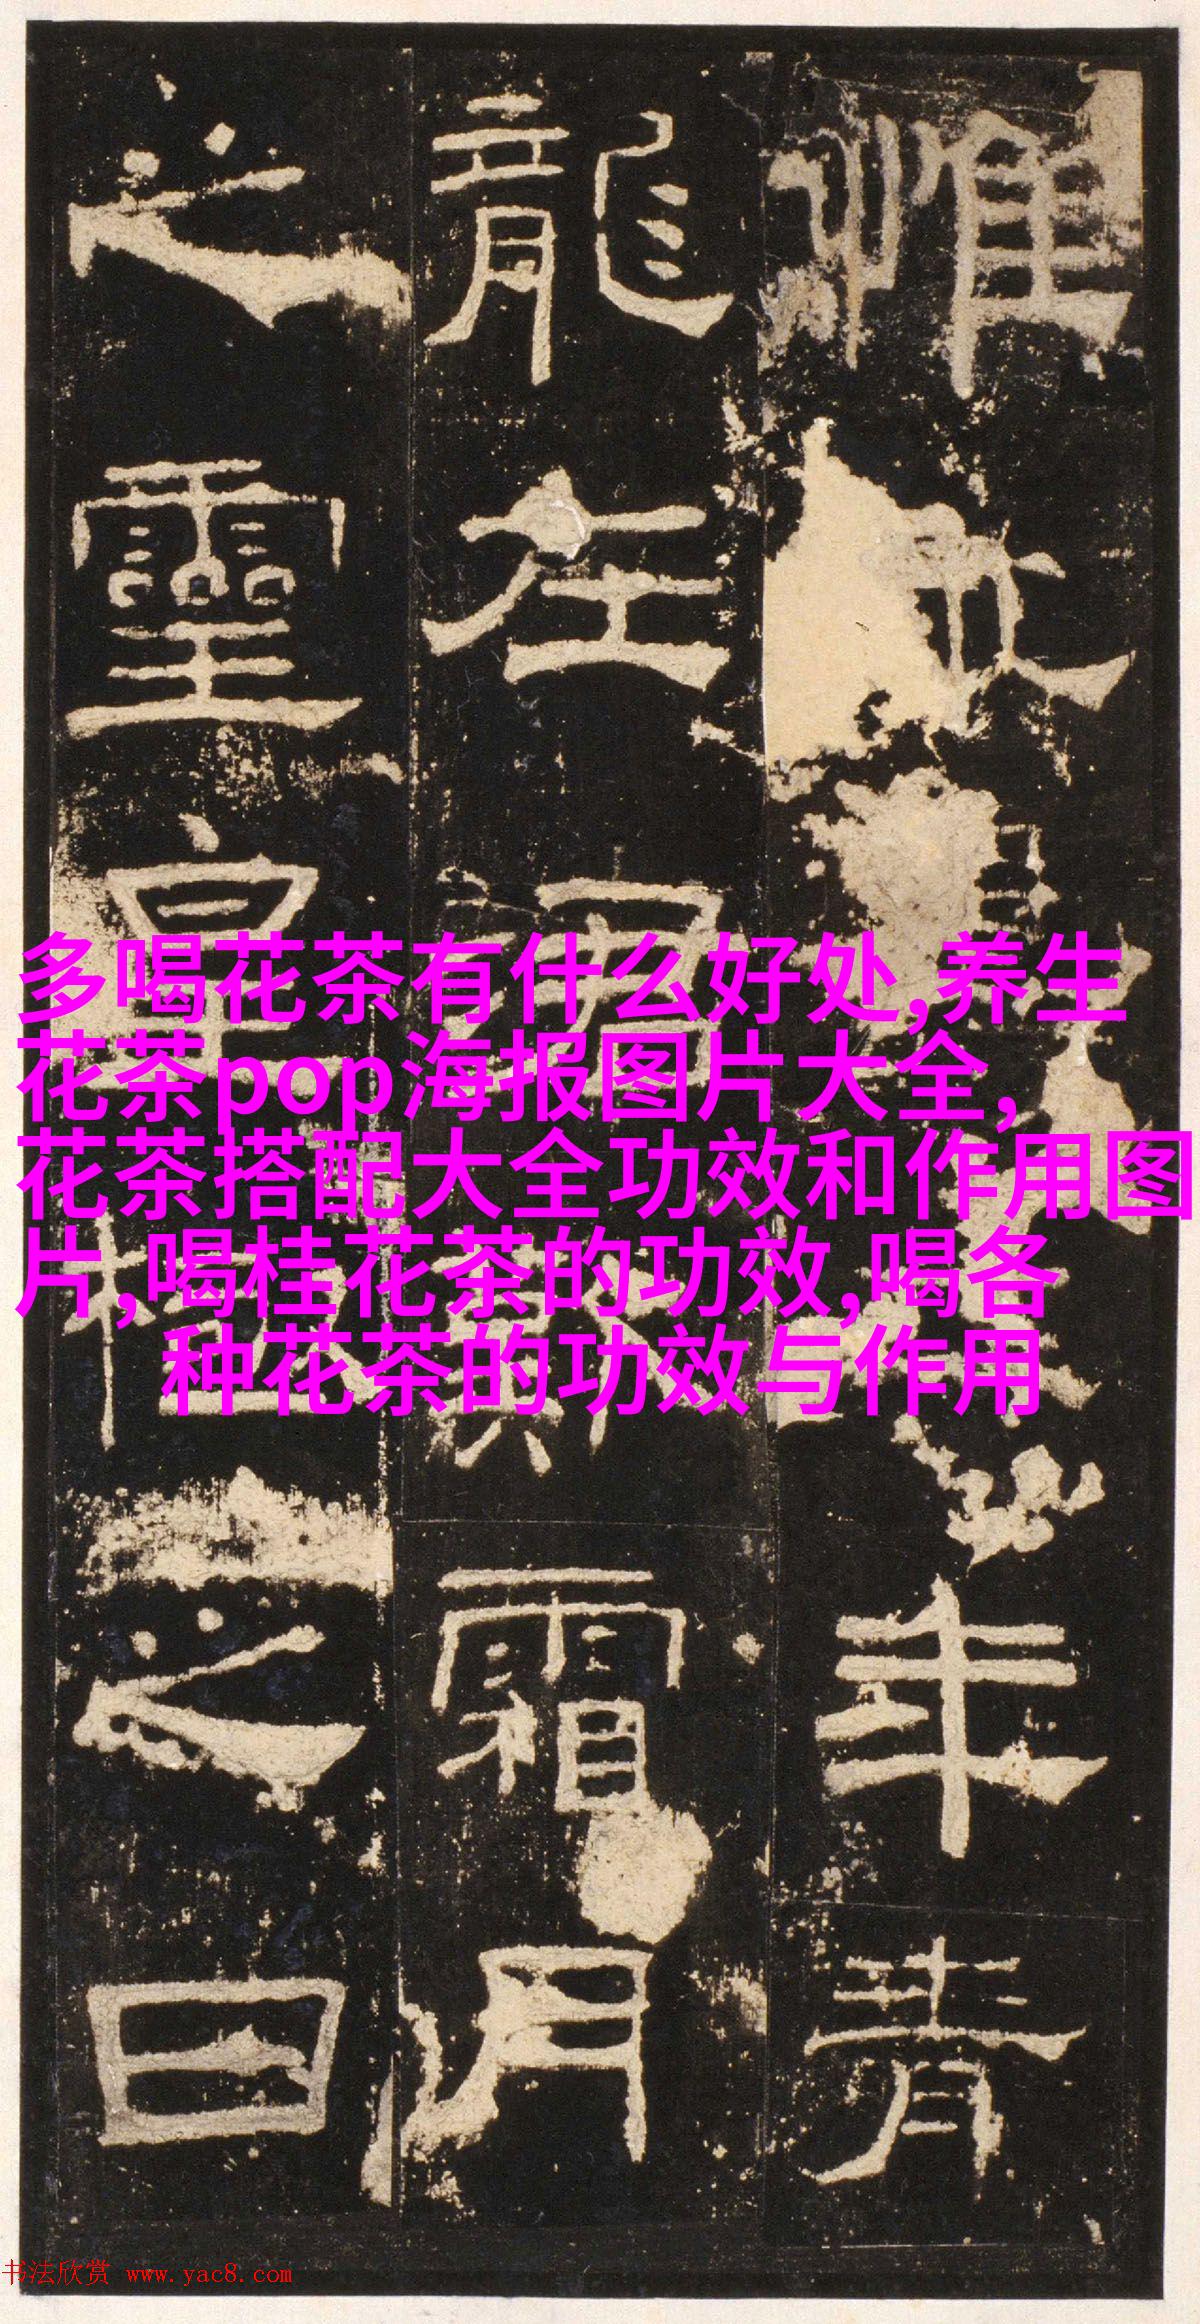 惟年青
龍在霜月
之靈皇之日
多喝花茶有什么好处,养生
花茶pop海报图片大全,
花茶搭配大全功效和作用图
片,喝桂花茶的功效,喝各
种花茶的功效与作用
书法欣赏 www.yac8.com